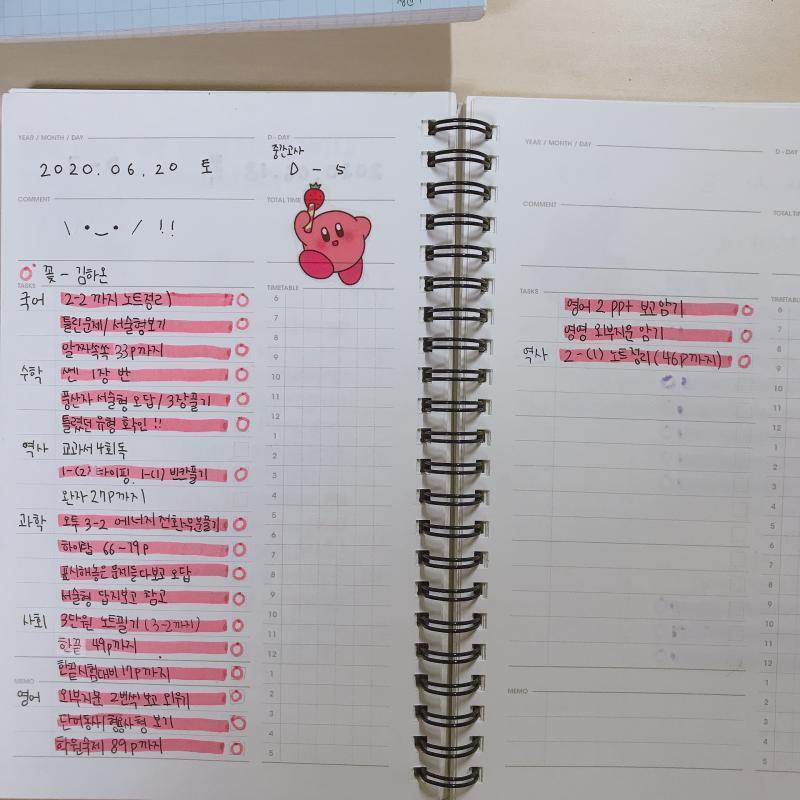 YEAR / MONTH / DAY
D-DAY
2020.06.20 토
중간고사
D-5
COMMENT
TOTAL TIME
\ •‿• / !!
꽃 - 김하온
TASKS
TIMETABLE
국어 2-2 까지 노트정리
틀린문제/ 서술형보기
알짜쏙쏙 33p까지
수학 쎈 1장 반
풍산자 서술형 오답 / 3장풀기
틀렸던 유형 확인 !!
역사 교과서 4회독
1-(2) 타이핑, 1-(1) 빈칸풀기
완자 27p까지
과학 오투 3-2 에너지 전환 부분풀기
하이탑 66-79p
표시해놓은 문제들 다보고 오답
서술형 답지보고 참고
사회 3단원 노트필기 (3-2까지)
한끝 49p까지
한끝시험대비 17p까지
MEMO
영어 외부지문 2번씩 보고 외우기
단어 동사/형용사형 보기
학원숙제 89p까지
6
7
8
9
10
11
12
1
2
3
4
5
6
7
8
9
10
11
12
1
2
3
4
5
YEAR / MONTH / DAY
D-DAY
COMMENT
TOTAL TIM
TASKS
TIMETABLE
영어 2 ppt 보고암기
영영 외부지문 암기
역사 2-(1) 노트정리 (46p까지)
MEMO
6
7
8
9
10
11
12
1
2
3
4
5
6
7
8
9
10
11
12
1
2
3
4
5